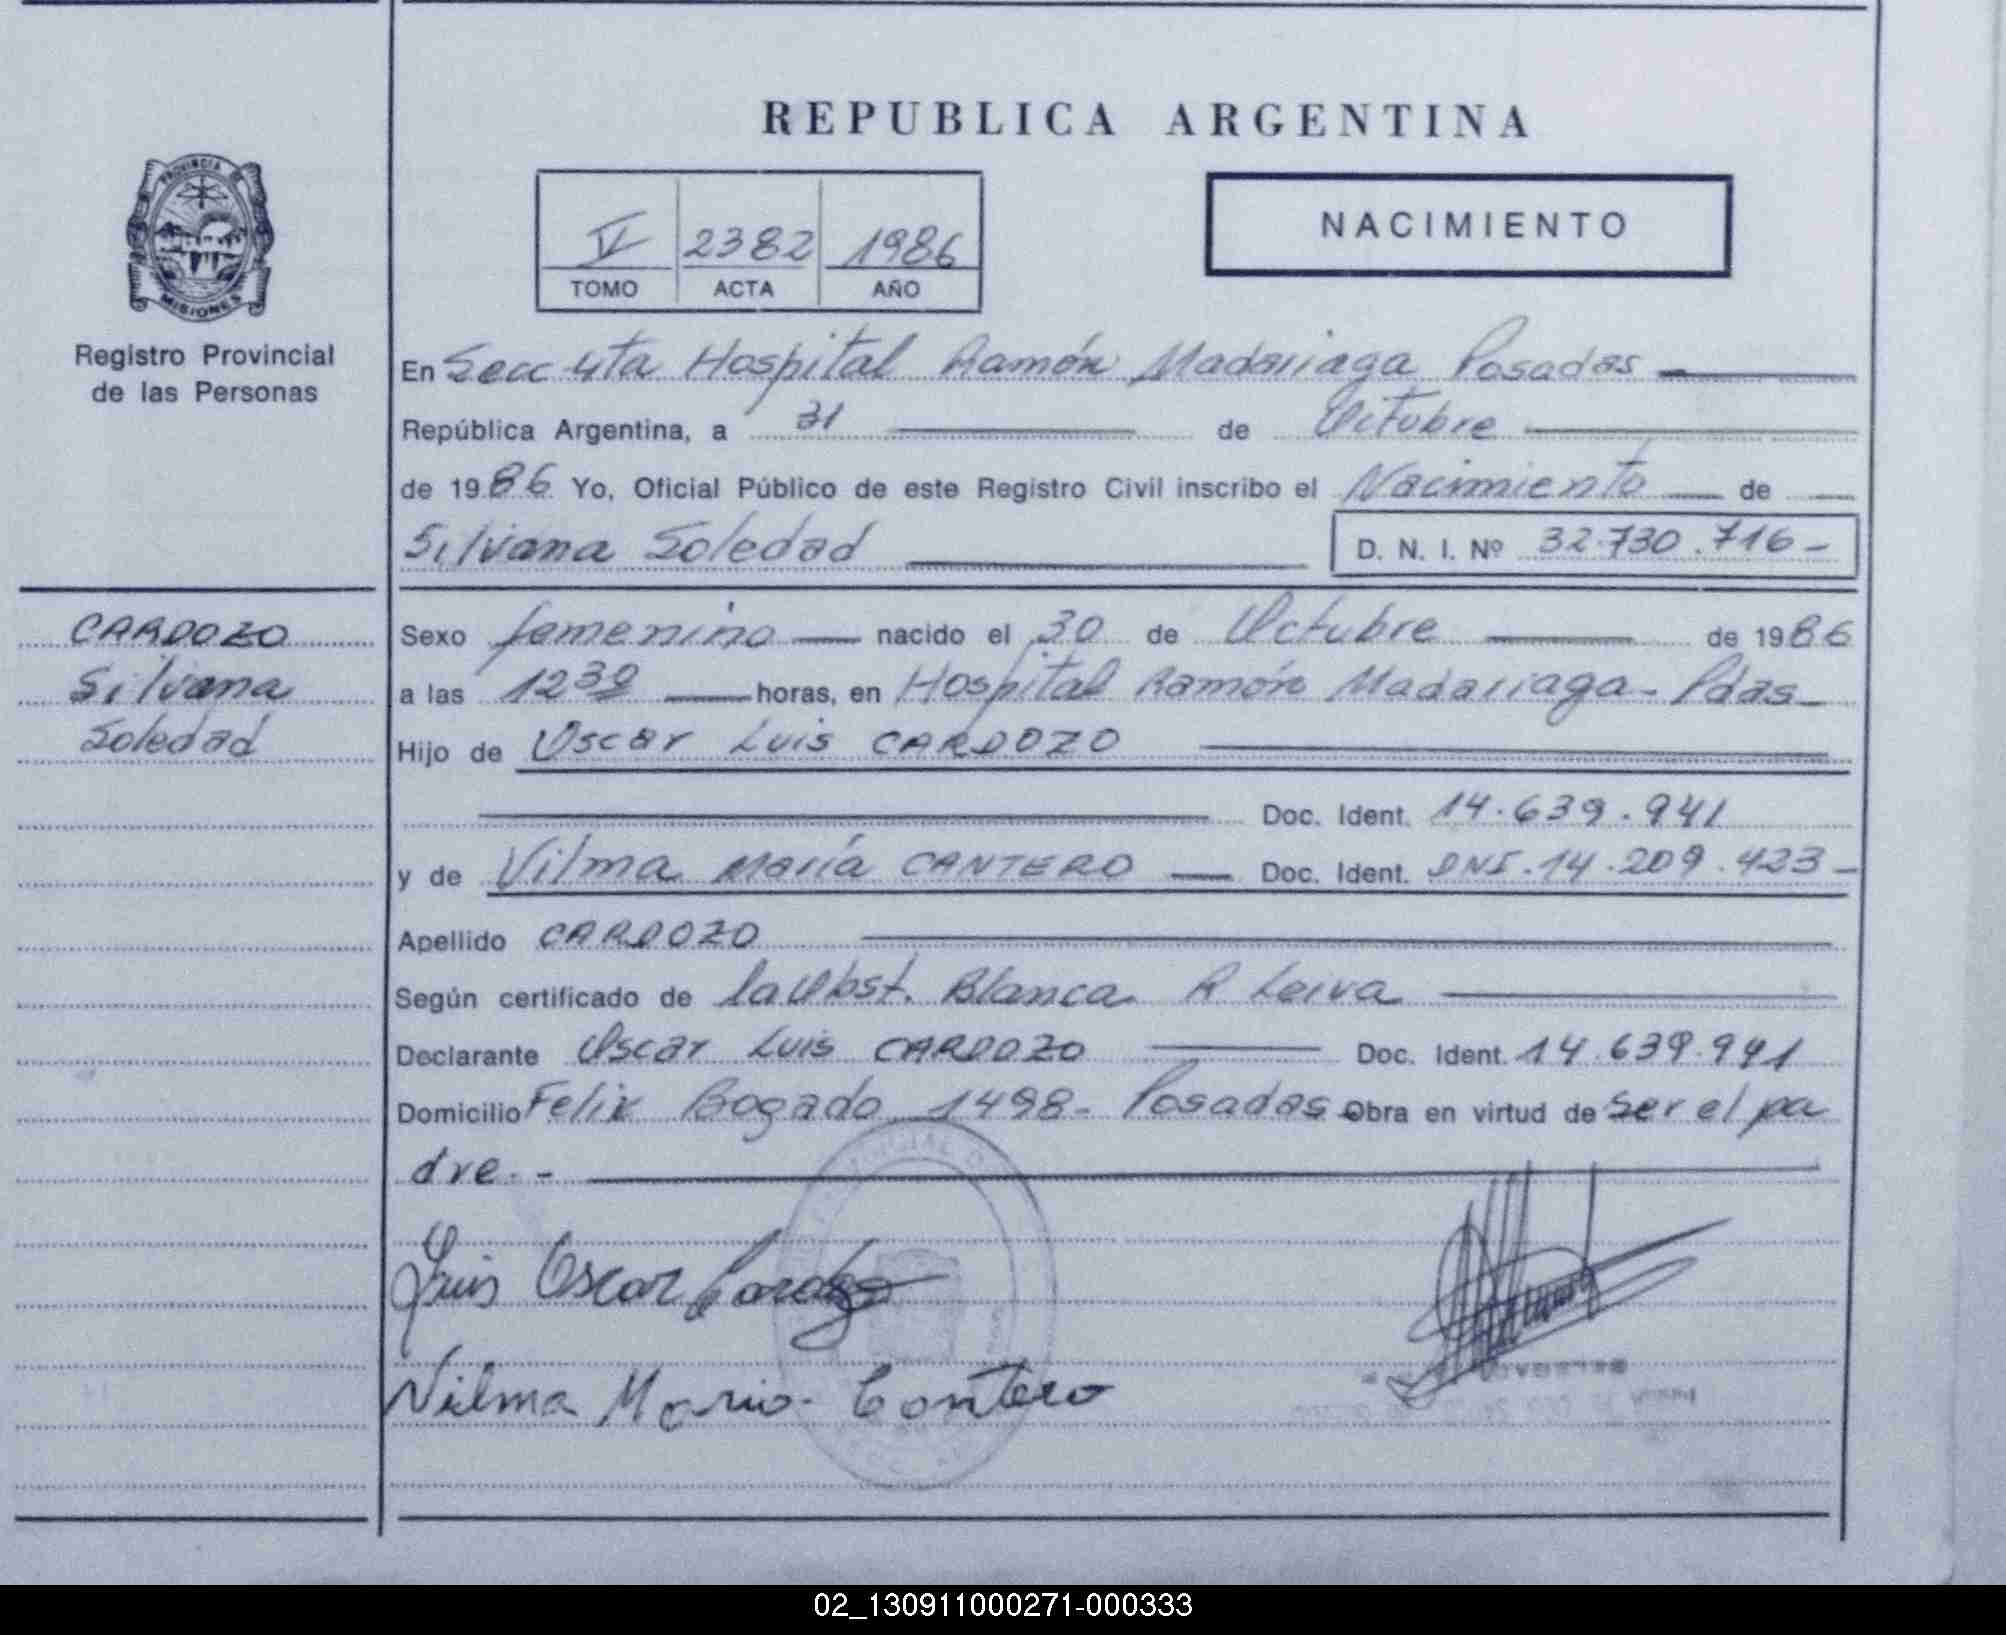 REPUBLICA ARGENTINA
PROVINCIA DE
MISIONES
Registro Provincial
de las Personas
V 2382 1986
TOMO ACTA AÑO
NACIMIENTO
En Secc 4ta Hospital Ramón Madariaga Posadas
República Argentina, a 31 de Octubre
de 1986 Yo, Oficial Público de este Registro Civil inscribo el Nacimiento de
Silvana Soledad D. N. I. Nº 32.730.716-
CARDOZO
Silvana
Soledad
Sexo femenino nacido el 30 de Octubre de 1986
a las 12 horas, en Hospital Ramón Madariaga- Pdas-
Hijo de Oscar Luis CARDOZO
Doc. Ident. 14.639.941
y de Vilma María CANTERO Doc. Ident. DNI.14.209.423-
Apellido CARDOZO
Según certificado de la Obst. Blanca R Leiva
Declarante Oscar Luis CARDOZO Doc. Ident. 14.639.941
Domicilio Felix Bogado 1498- Posadas Obra en virtud de ser el pa
dre.-
Luis Oscar Cardozo
Vilma Maria Cantero
02_130911000271-000333